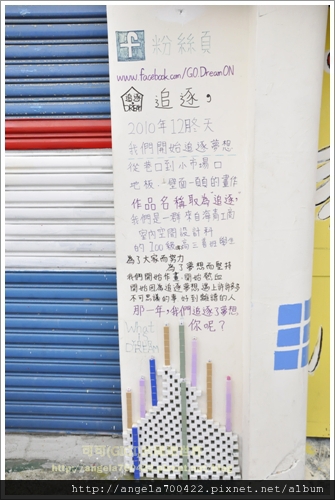 f 粉絲頁
www.facebook.com/GO.DreamON
追逐 DREAM 追逐,
2010年12月冬天
我們開始追逐夢想
從巷口到小市場口
地板、壁面一白的畫作
作品名稱取為"追逐,
我們是一群來自海青工商
室內空間設計科
的100級 高三畢班學生
為了大家而努力
為了夢想而堅持
我們開始作畫,開始熱血
開始因為追逐夢想遇上許許多多
不可思議的事 好到離譜的人
那一年,我們追逐了夢想
你呢?
What is DREAM
http://angela700422.pixnet.net/album